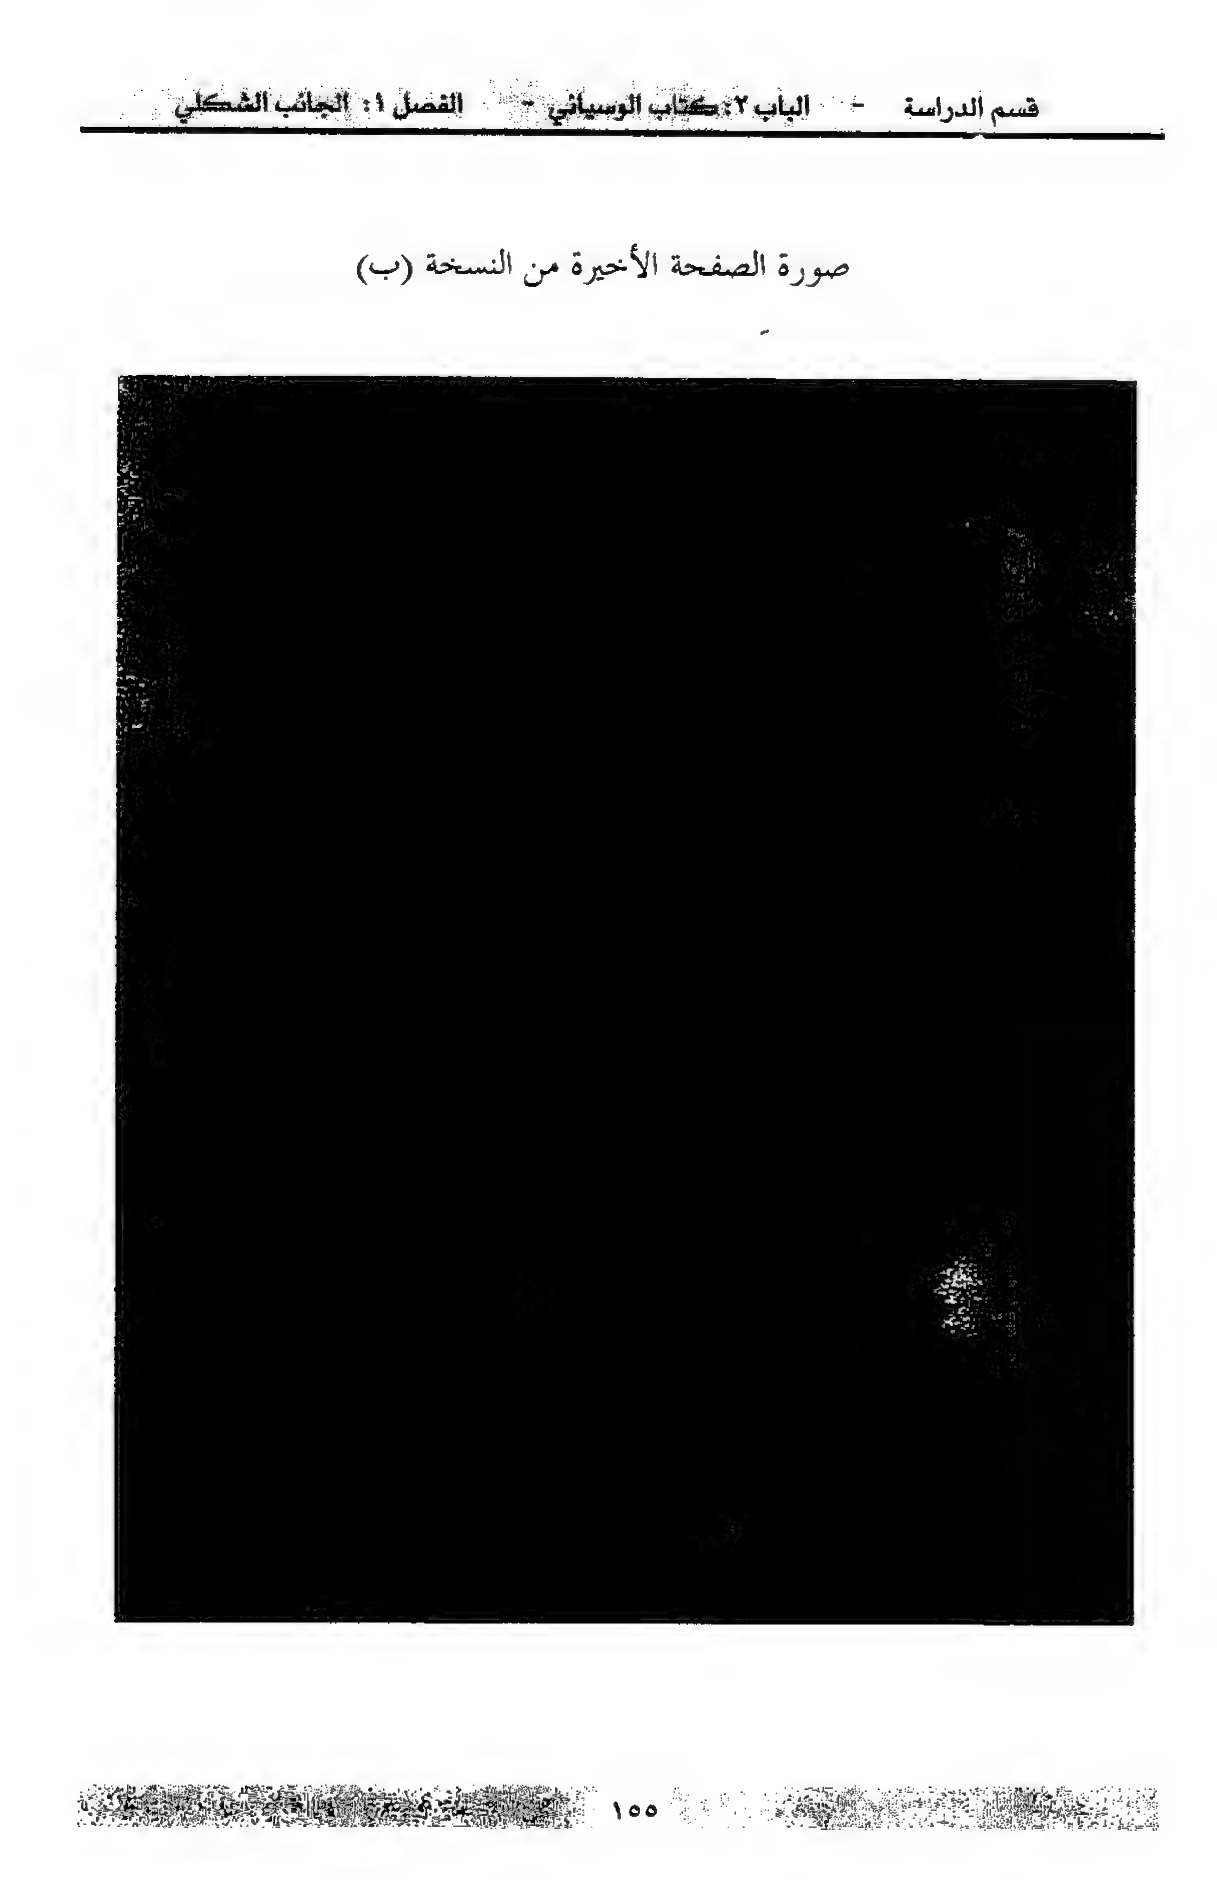 قسم الدراسة - الباب ٢: كتاب الوسياني - الفصل ١: الجانب الشكلي
صورة الصفحة الأخيرة من النسخة (ب)
١٥٥